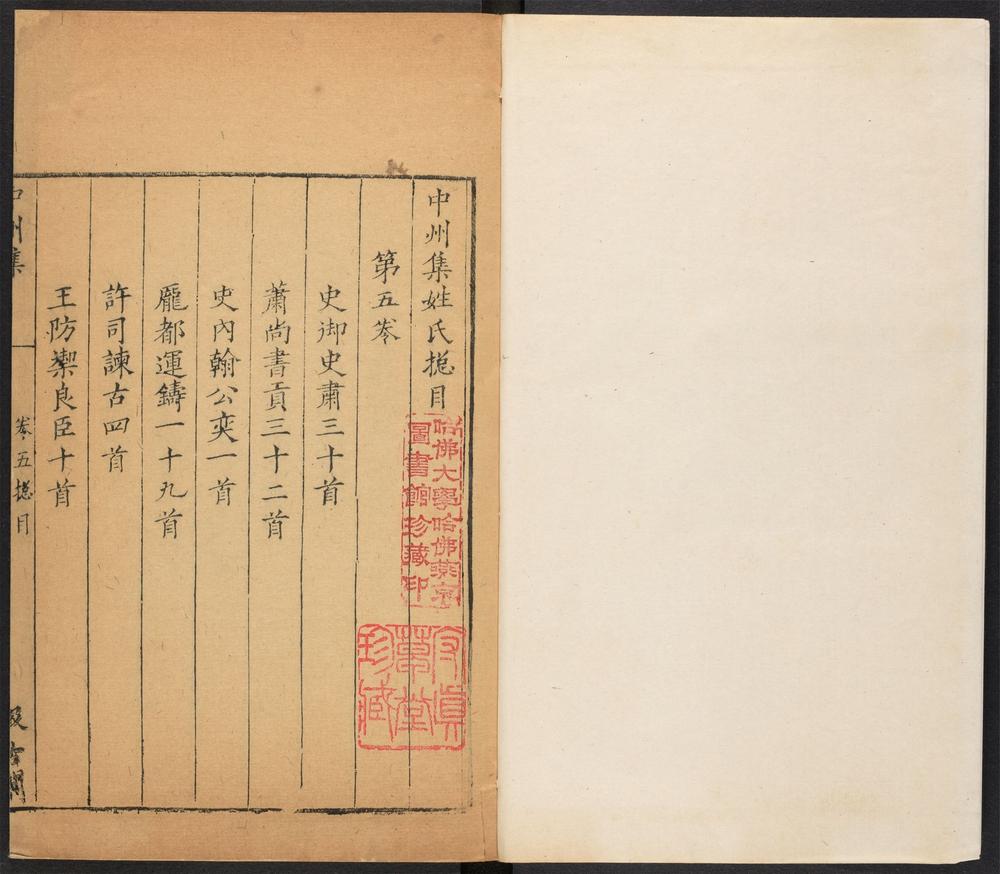 中州集姓氏揔目
第五卷
史御史肅三十首
蕭尚書貢三十二首
史內翰公奕一首
龐都運鑄一十九首
許司諫古四首
王防禦良臣十首
中州集
卷五揔目
汲古閣
哈佛大學哈佛燕京
圖書館珍藏印
草堂
珍藏